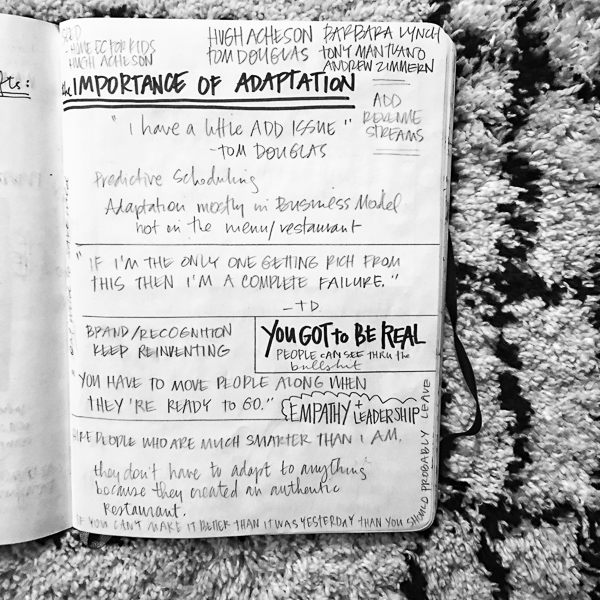 HOME EC FOR KIDS
HUGH ACHESON
HUGH ACHESON BARBARA LYNCH
TOM DOUGLAS TONY MANTUANO
ANDREW ZIMMERN
the IMPORTANCE OF ADAPTATION
ADD
REVENUE
STREAMS
"I have a little ADD ISSUE"
-TOM DOUGLAS
Predictive Scheduling
Adaptation mostly in Business Model
not on the menu/restaurant
"IF I'M THE ONLY ONE GETTING RICH FROM
THIS THEN I'M A COMPLETE FAILURE."
-TD
BRAND/RECOGNITION
KEEP REINVENTING
YOU GOT to BE REAL
PEOPLE CAN SEE THRU the
bullshit
"YOU HAVE TO MOVE PEOPLE ALONG WHEN
THEY'RE READY TO GO."
EMPATHY + LEADERSHIP
HIRE PEOPLE WHO ARE MUCH SMARTER THAN I AM.
they don't have to adapt to anything
because they created an authentic
restaurant.
IF YOU CAN'T MAKE IT BETTER THAN IT WAS YESTERDAY THAN YOU SHOULD PROBABLY LEAVE